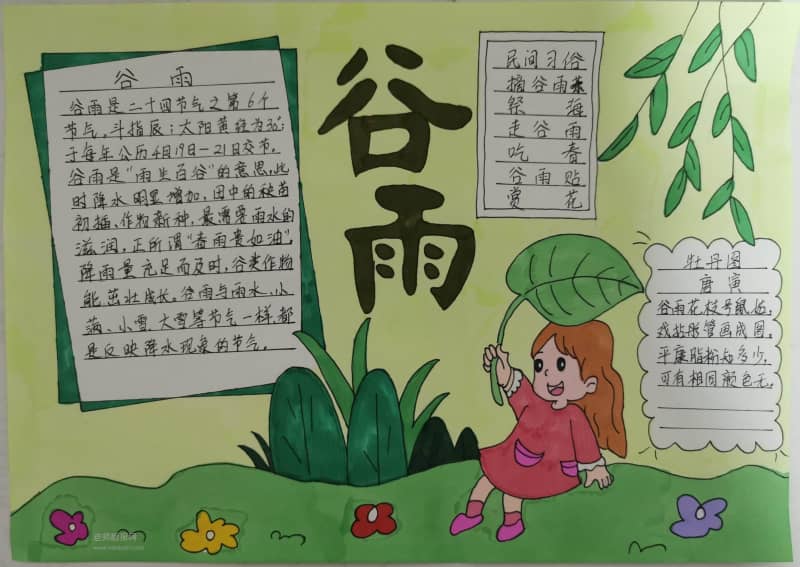 谷雨
谷雨是二十四节气之第6个
节气，斗指辰；太阳黄经为30°；
于每年公历4月19日—21日交节。
谷雨是“雨生百谷”的意思，此
时降水明显增加，田中的秧苗
初插、作物新种，最需要雨水的
滋润，正所谓“春雨贵如油”。
降雨量充足而及时，谷类作物
能茁壮成长。谷雨与雨水、小
满、小雪、大雪等节气一样，都
是反映降水现象的节气。
谷
雨
民间习俗
摘谷雨茶
祭海
走谷雨
吃春
谷雨贴
赏花
牡丹图
唐寅
谷雨花枝号鼠姑，
戏拈彤管画成图。
平康脂粉知多少，
可有相同颜色无。